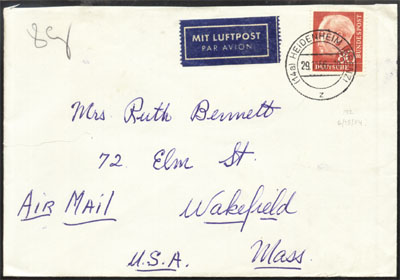 MIT LUFTPOST
PAR AVION
(14a) HEIDENHEIM
29
z
DEUTSCHE
BUNDESPOST
Mrs. Ruth Bennett
72 Elm St.
Air Mail
Wakefield
U.S.A.
Mass.